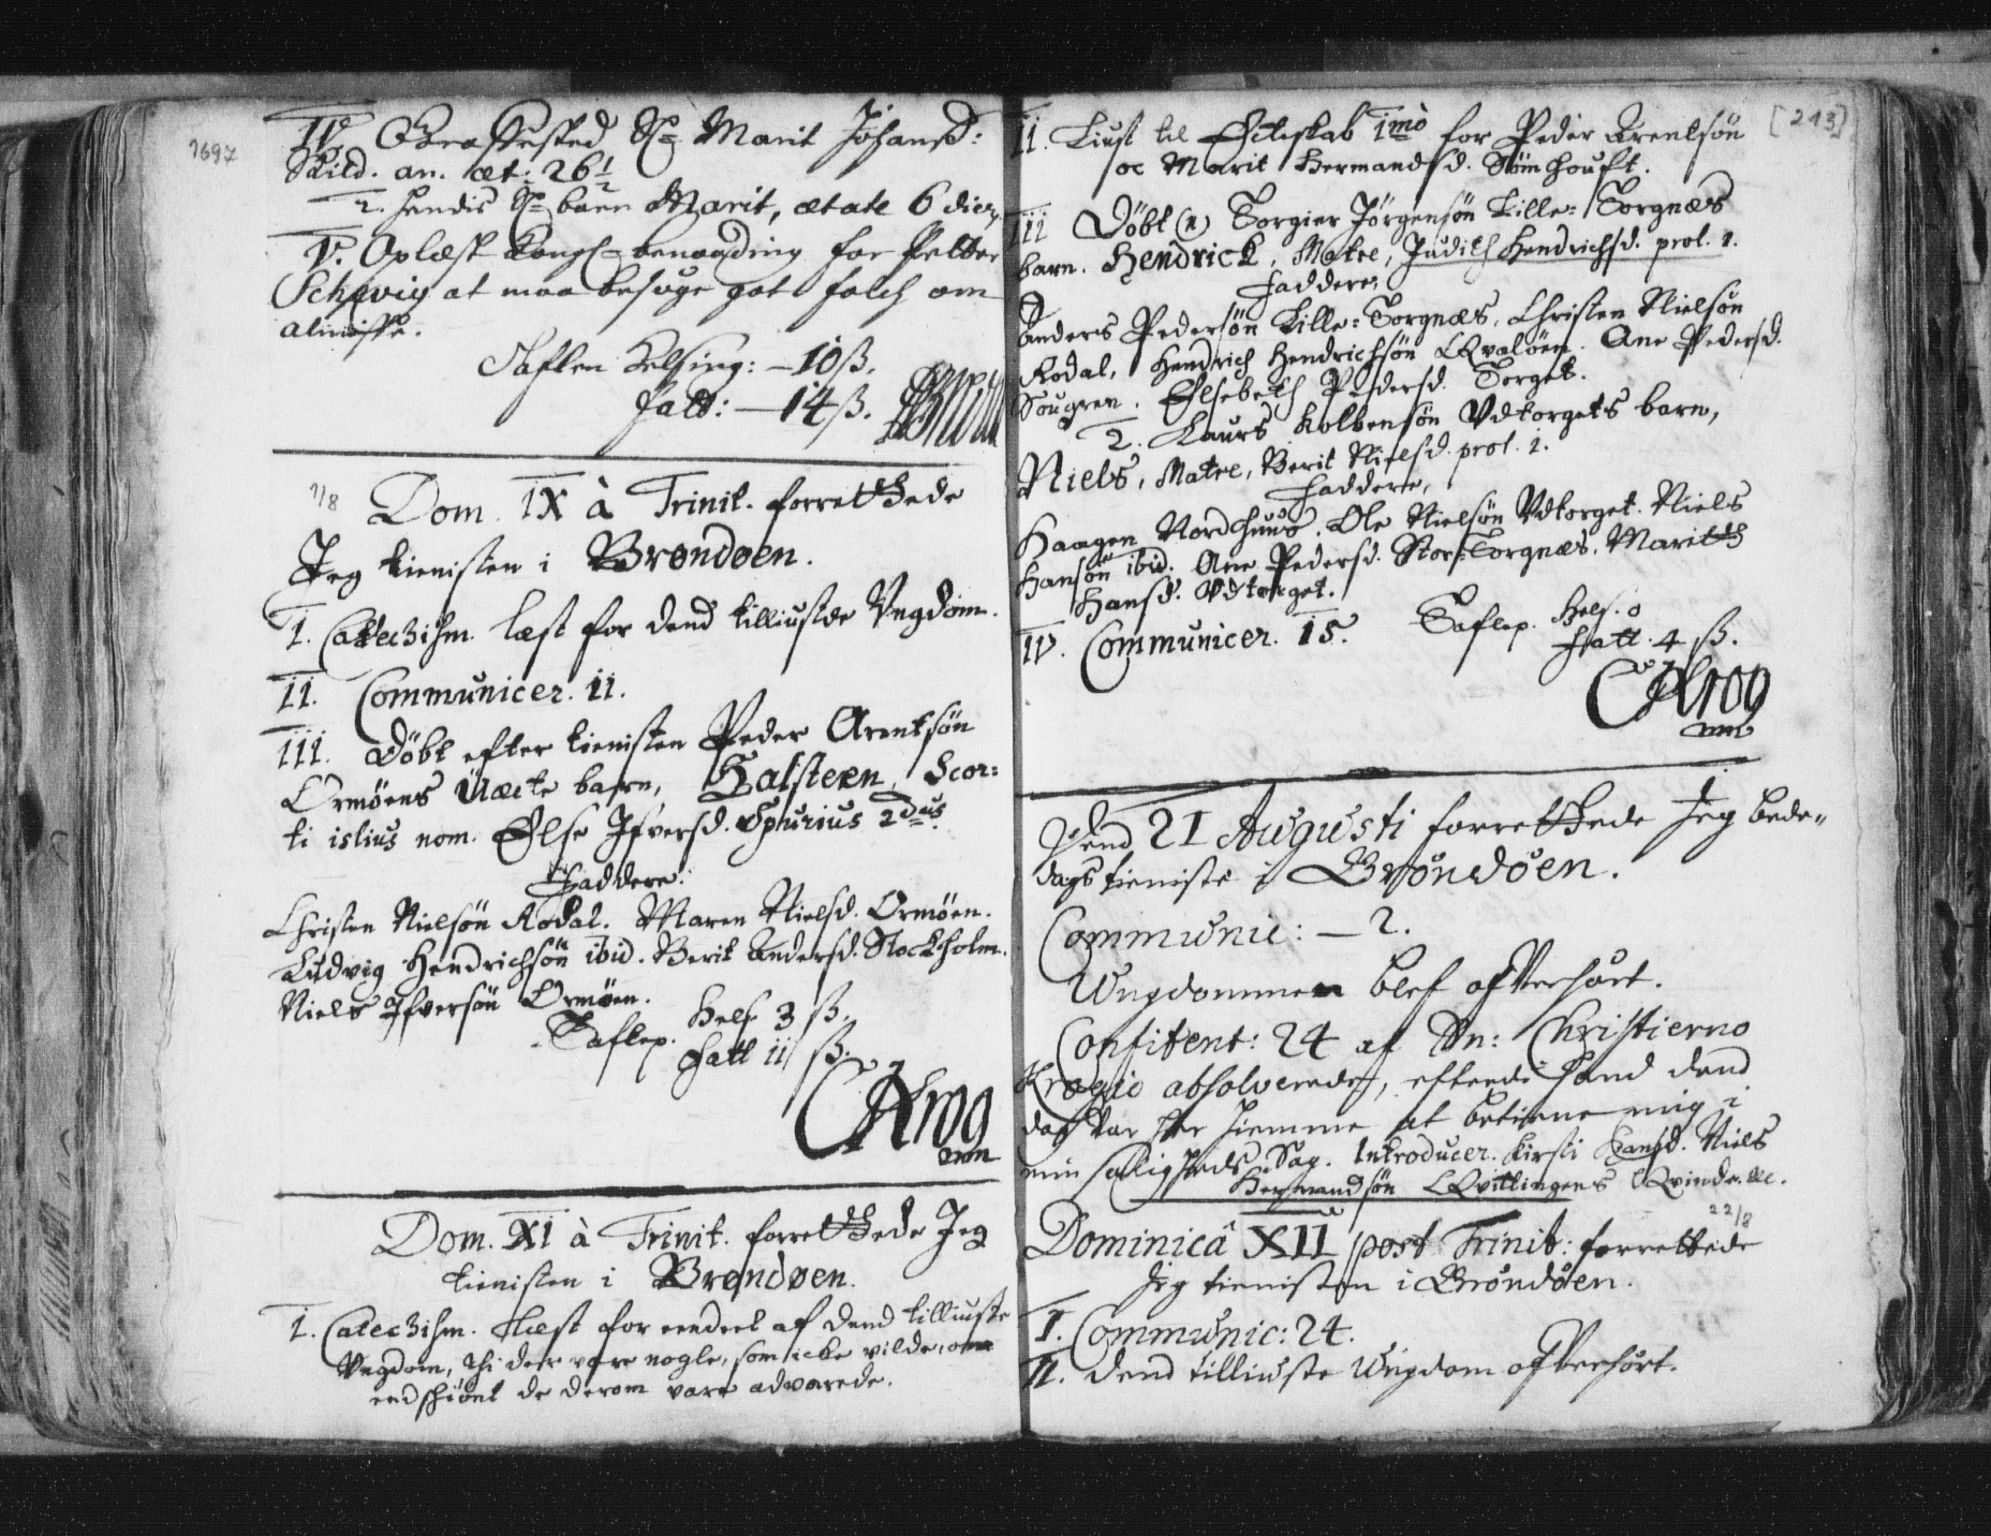 1697
IV. Græffested S. Marit Johansd:
Skild. an. æt: 26 1/2
2. hendis S. barn Marit, ætate 6 dier.
V. Oplæst Kongl. benaading for Petter
Schavig at maa besøge got folch om
almisse.
Taflen Helsing: – 10 ß.
fatt: – 14 ß.
1/8
Dom. IX à Trinit. forretthede
Jeg tienisten i Brøndøen.
I. Catechism. læst for dend tilliuste Vngdom.
II. Communicer. 11.
III. Döbt efter tienisten Peder Arentsön
Ormöens Uæcte barn, Halsteen, Scor:
ti istius nom. Else Ifversd. Spurius 2dus
Faddere:
Christen Nielsön Rödal. Maren Nielsd. Ormöen.
Ludvig Hendrichsön ibid. Berit Andersd. Stockholm.
Niels Ifversön Ormöen.
Taflep. Hels 3 ß.
Fatt 11 ß.
CKrog
mm
Dom. XI à Trinit. forretthede Jeg
tienisten i Brøndøen.
I. Catechism. læst for eendeel af dend tilliuste
Vngdom, thi der vare nogle, som icke vilde, om
endskiönt de derom vare advarede.
[213]
II. Liust til Ecteskab 1mo for Peder Arentsön
oc Marit Hermandsd. Sömhouft.
III Döbt (1) Torgier Jörgensön Lille-Torgnæs
barn. Hendrick, Matre, Judith Hendrichsd. prol. 1.
Faddere,
Anders Pedersön Lille-Torgnæs, Christen Nielsön
Rodal, Hendrich Hendrichsön Qvalöen. Ane Pedersd.
Sougren. Elsebeth Pedersd. Torget.
2. Laurs Kolbensön Vdtorgets barn,
Niels, Matre, Berit Nielsd. prol. 1.
Faddere,
Haagen Nordhuus. Ole Nielsön Vdtorget. Niels
Hansön ibid. Ane Pedersd. Stor-Torgnæs. Maritth
Hansd. Vdtorget.
IV. Communicer. 15. Taflep. Hels. 0
Fatt. 4 ß.
CKrog
mm
Dend 21 Augusti forretthede Jeg bede-
dags tieniste i Brøndøen.
Communic: – 2.
Ungdommen blef ofverhört.
Confitent: 24 af Dn: Christierno
Krogio absolverede, efterdi hand dend
dag var her hiemme at betiene mig i
min saligheds Sag. Introducer. Kirsti Hansd. Niels
Hermandsön Qvitlingens Qvinde. etc.
22/8
Dominicâ XII post Trinit: forrettede
Jeg tienisten i Brøndøen.
I. Communic: 24.
II. Dend tilliuste Ungdom ofverhört.